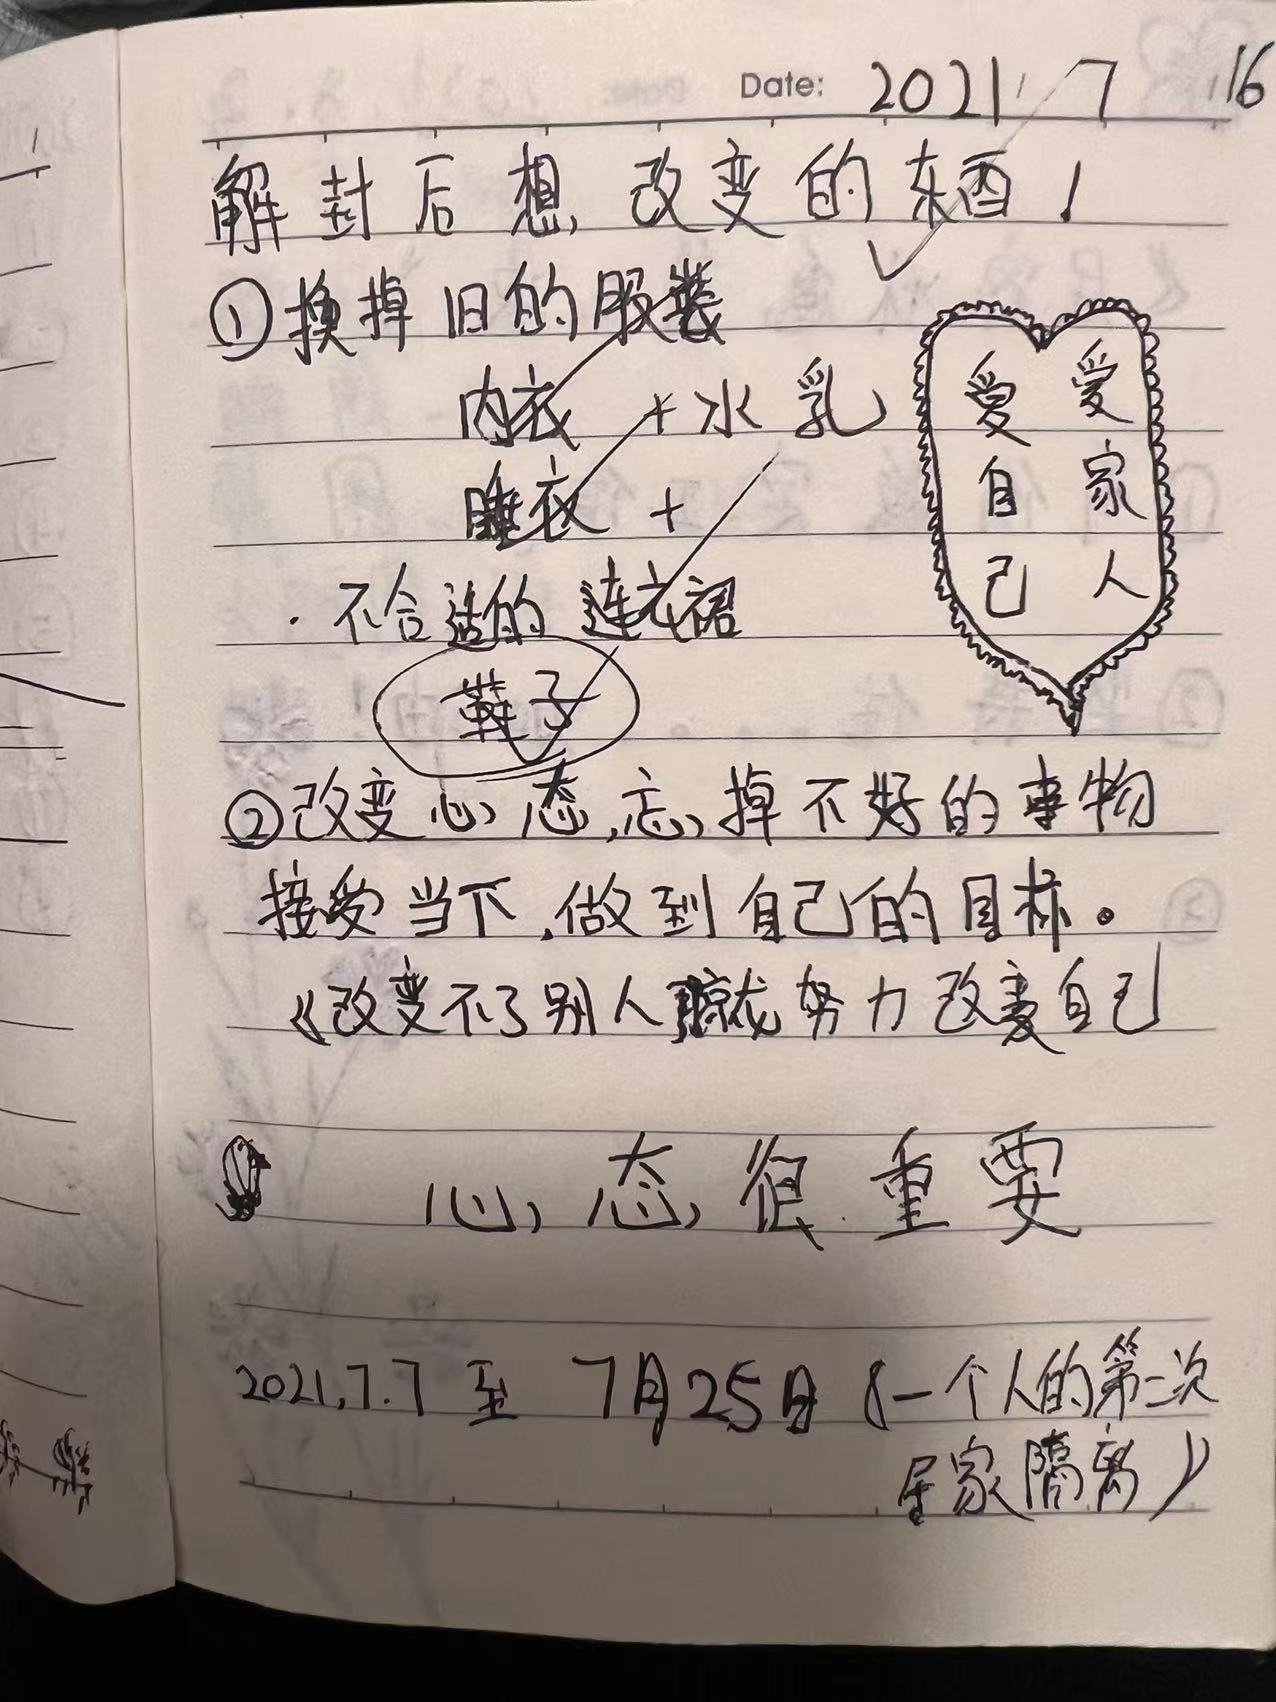 Date: 2021 7 16
解封后想改变的东西!
①换掉旧的服装
内衣 + 水乳
睡衣 +
· 不合适的连衣裙
鞋子
爱自己
爱家人
②改变心态,忘掉不好的事物
接受当下,做到自己的目标。
《改变不了别人就努力改变自己
心态很重要
2021.7.7 至 7月25日 (一个人的第一次
居家隔离)